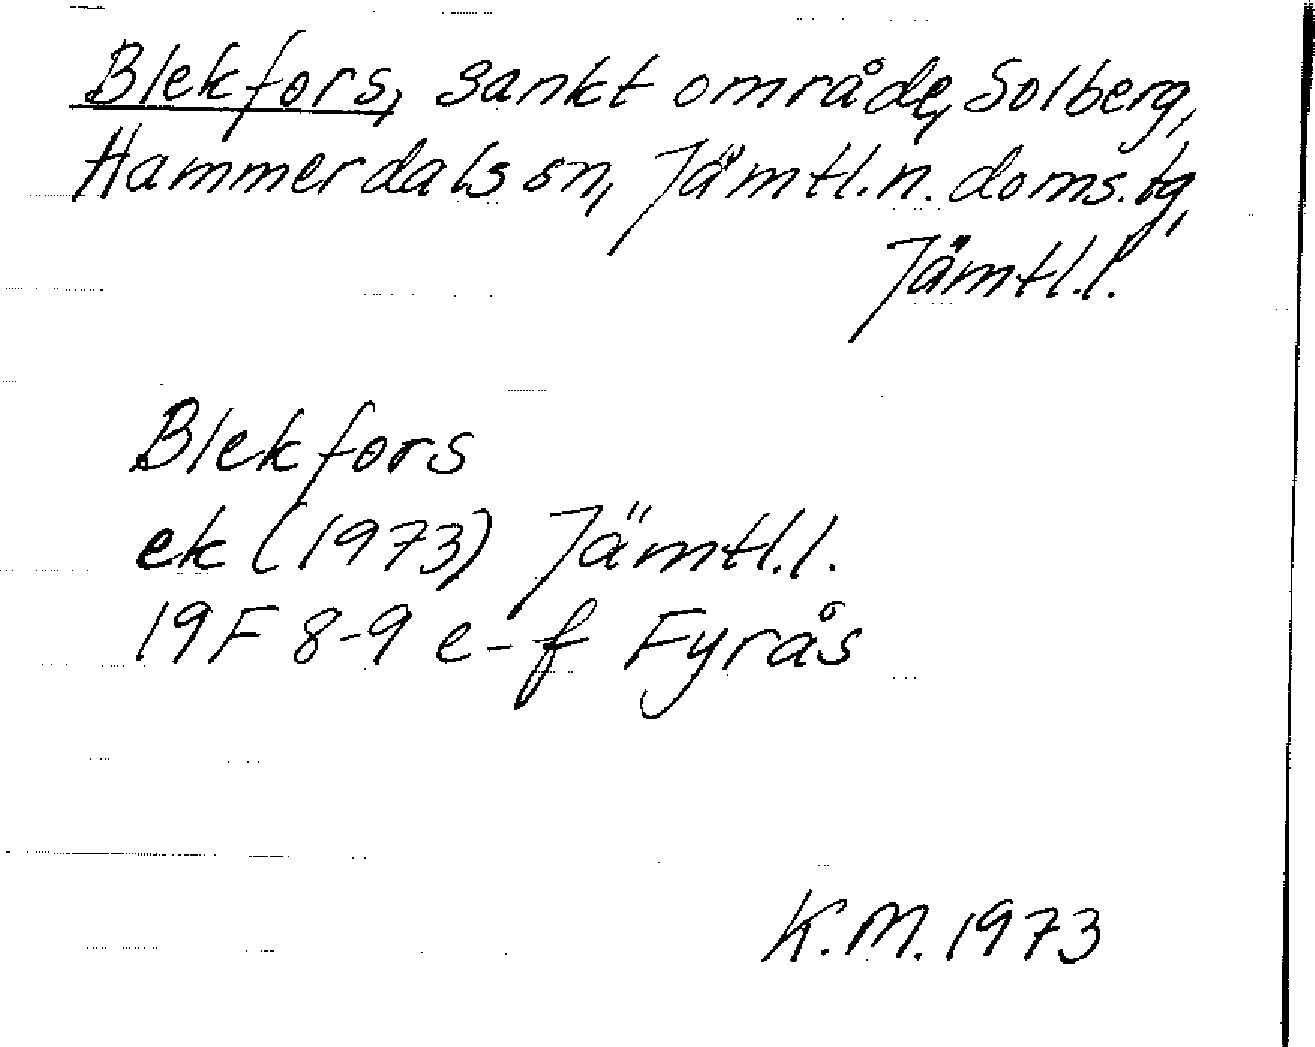 Blekfors, sankt område, Solberg,
Hammerdals sn, Jämtl.n. doms. tg,
Jämtl.l.
Blekfors
ek (1973) Jämtl.l.
19F 8-9 e-f Fyrås
K.M. 1973